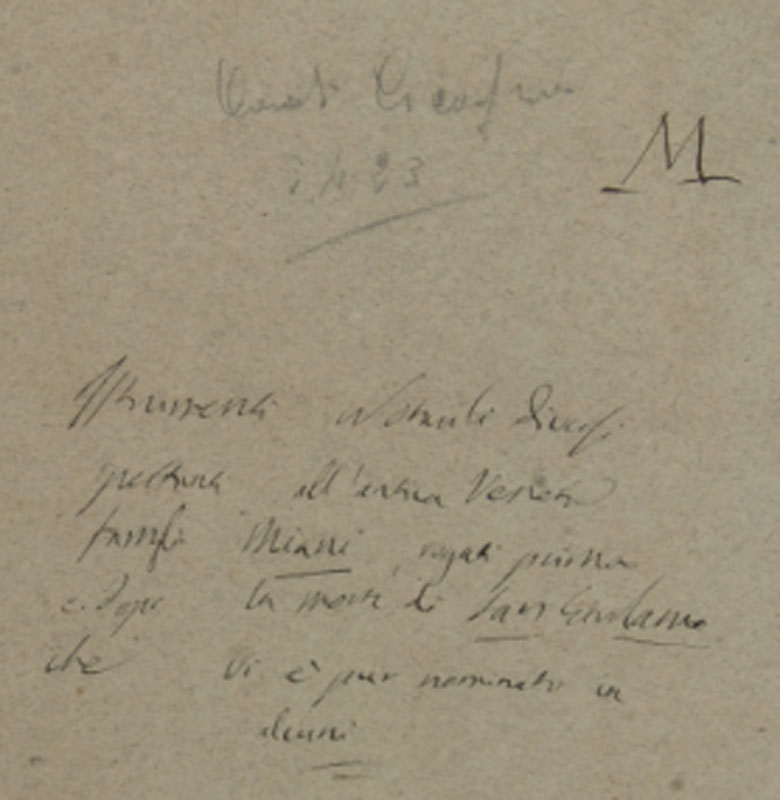 Cicogna
M
Istrumenti Notarili diversi
spettanti all'antica Veneta
famiglia Miani, rogati prima
e dopo la morte di San Girolamo
che vi è pur nominato in
alcuni